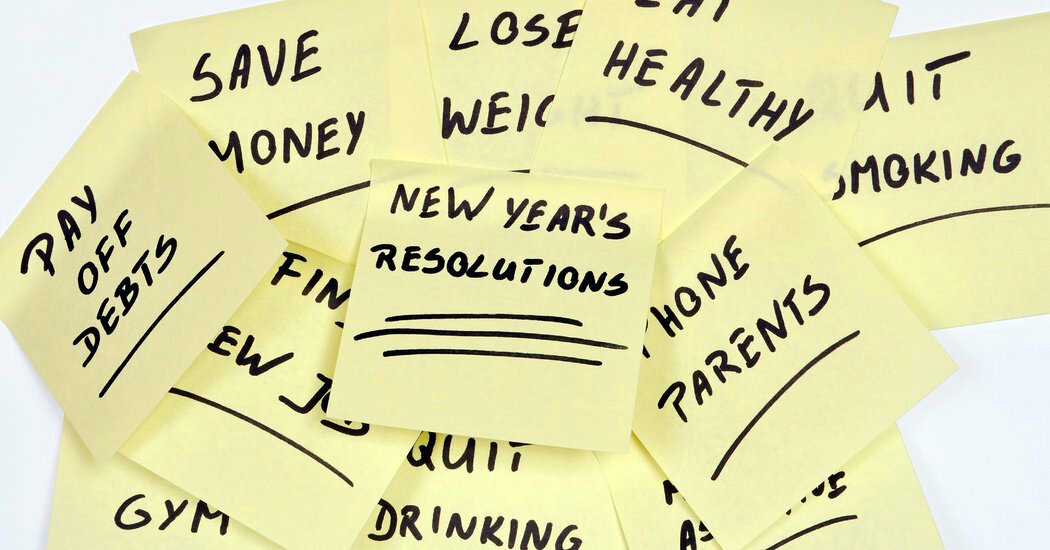 SAVE
MONEY
LOSE
WEIG
EAT
HEALTHY
QUIT
SMOKING
PAY
OFF
DEBTS
NEW YEAR'S
RESOLUTIONS
PHONE
PARENTS
FIN
EW JOB
GYM
QUIT
DRINKING